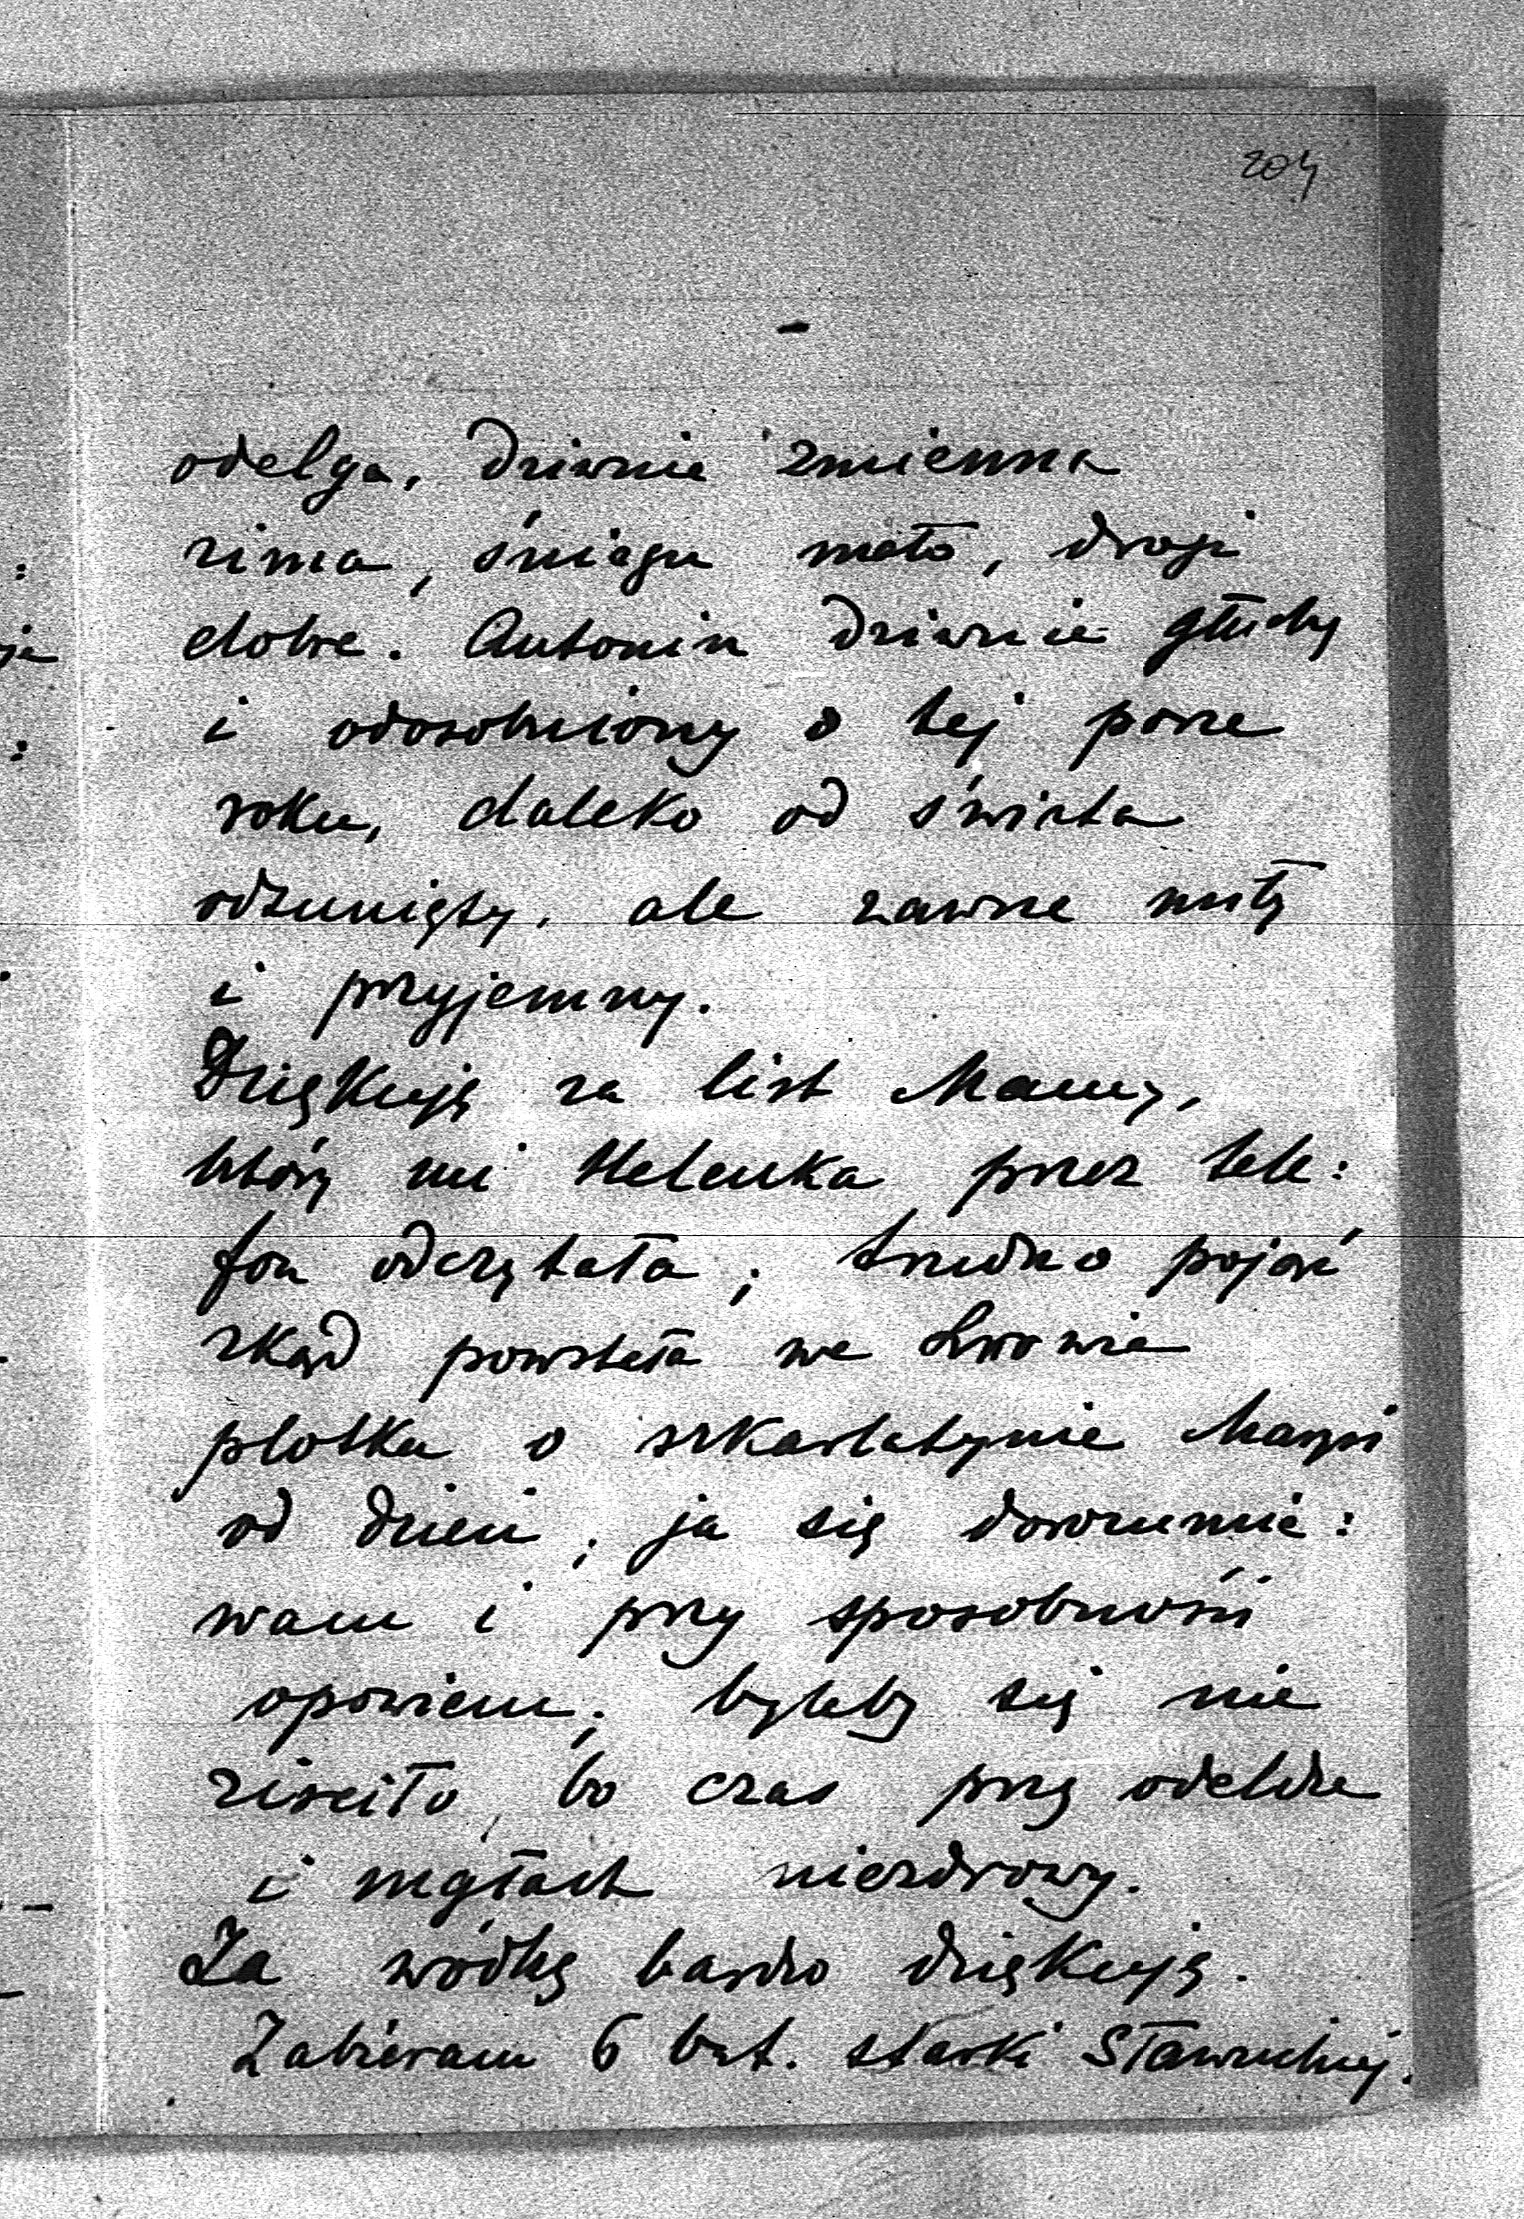 204
odelga, dziwnie zmienna
zima, śniegu mało, drogi
dobre. Antonin dziwnie głuchy
i odosobniony o tej porze
roku, daleko od świata
odsunięty, ale zawsze miły
i przyjemny.
Dziękuję za list Mamy,
który mi Helenka przez tele:
fon odczytała; trudno pojąć
zkąd powstała we Lwowie
plotka o szkarlatynie Marysi
od dzieci; ja się dorozumie:
wam i przy sposobności
opowiem; byleby się nie
ziściło, bo czas przy odeldze
i mgłach niezdrowy.
Za wódkę bardzo dziękuję.
Zabieram 6 but. starki Sławuckiej.